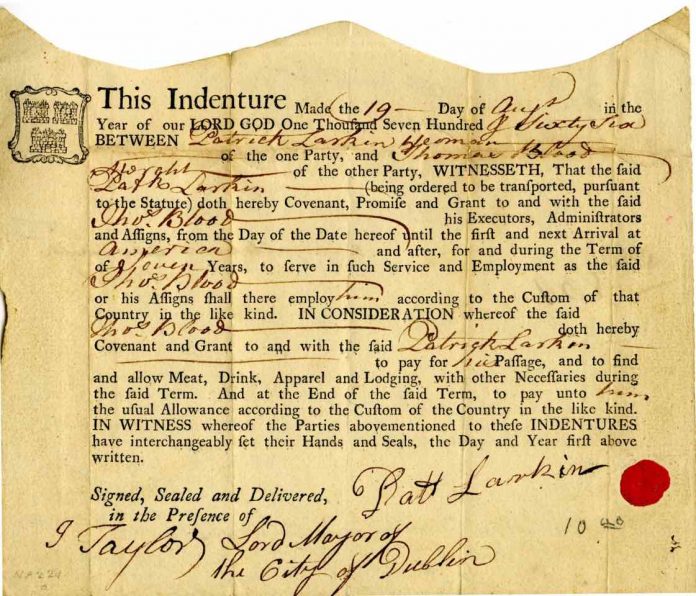 This Indenture Made the 19 Day of Augst in the
Year of our LORD GOD One Thouſand Seven Hundred & Sixty Six
BETWEEN Patrick Larkin Yeoman
of the one Party, and Thomas Blood
of the other Party, WITNESSETH, That the ſaid
Patk Larkin (being ordered to be tranſported, purſuant
to the Statute) doth hereby Covenant, Promiſe and Grant to and with the ſaid
Thos. Blood his Executors, Adminiſtrators
and Aſſigns, from the Day of the Date hereof until the firſt and next Arrival at
America and after, for and during the Term of
of Seven Years, to ſerve in ſuch Service and Employment as the ſaid
Thos. Blood
or his Aſſigns ſhall there employ him according to the Cuſtom of that
Country in the like kind. IN CONSIDERATION whereof the ſaid
Thos. Blood doth hereby
Covenant and Grant to and with the ſaid Patrick Larkin
to pay for his Paſſage, and to find
and allow Meat, Drink, Apparel and Lodging, with other Neceſſaries during
the ſaid Term. And at the End of the ſaid Term, to pay unto him
the uſual Allowance according to the Cuſtom of the Country in the like kind.
IN WITNESS whereof the Parties abovementioned to theſe INDENTURES
have interchangeably ſet their Hands and Seals, the Day and Year firſt above
written.
Signed, Sealed and Delivered,
in the Preſence of
Patt Larkin
J Taylor Lord Mayor of
the City of Dublin